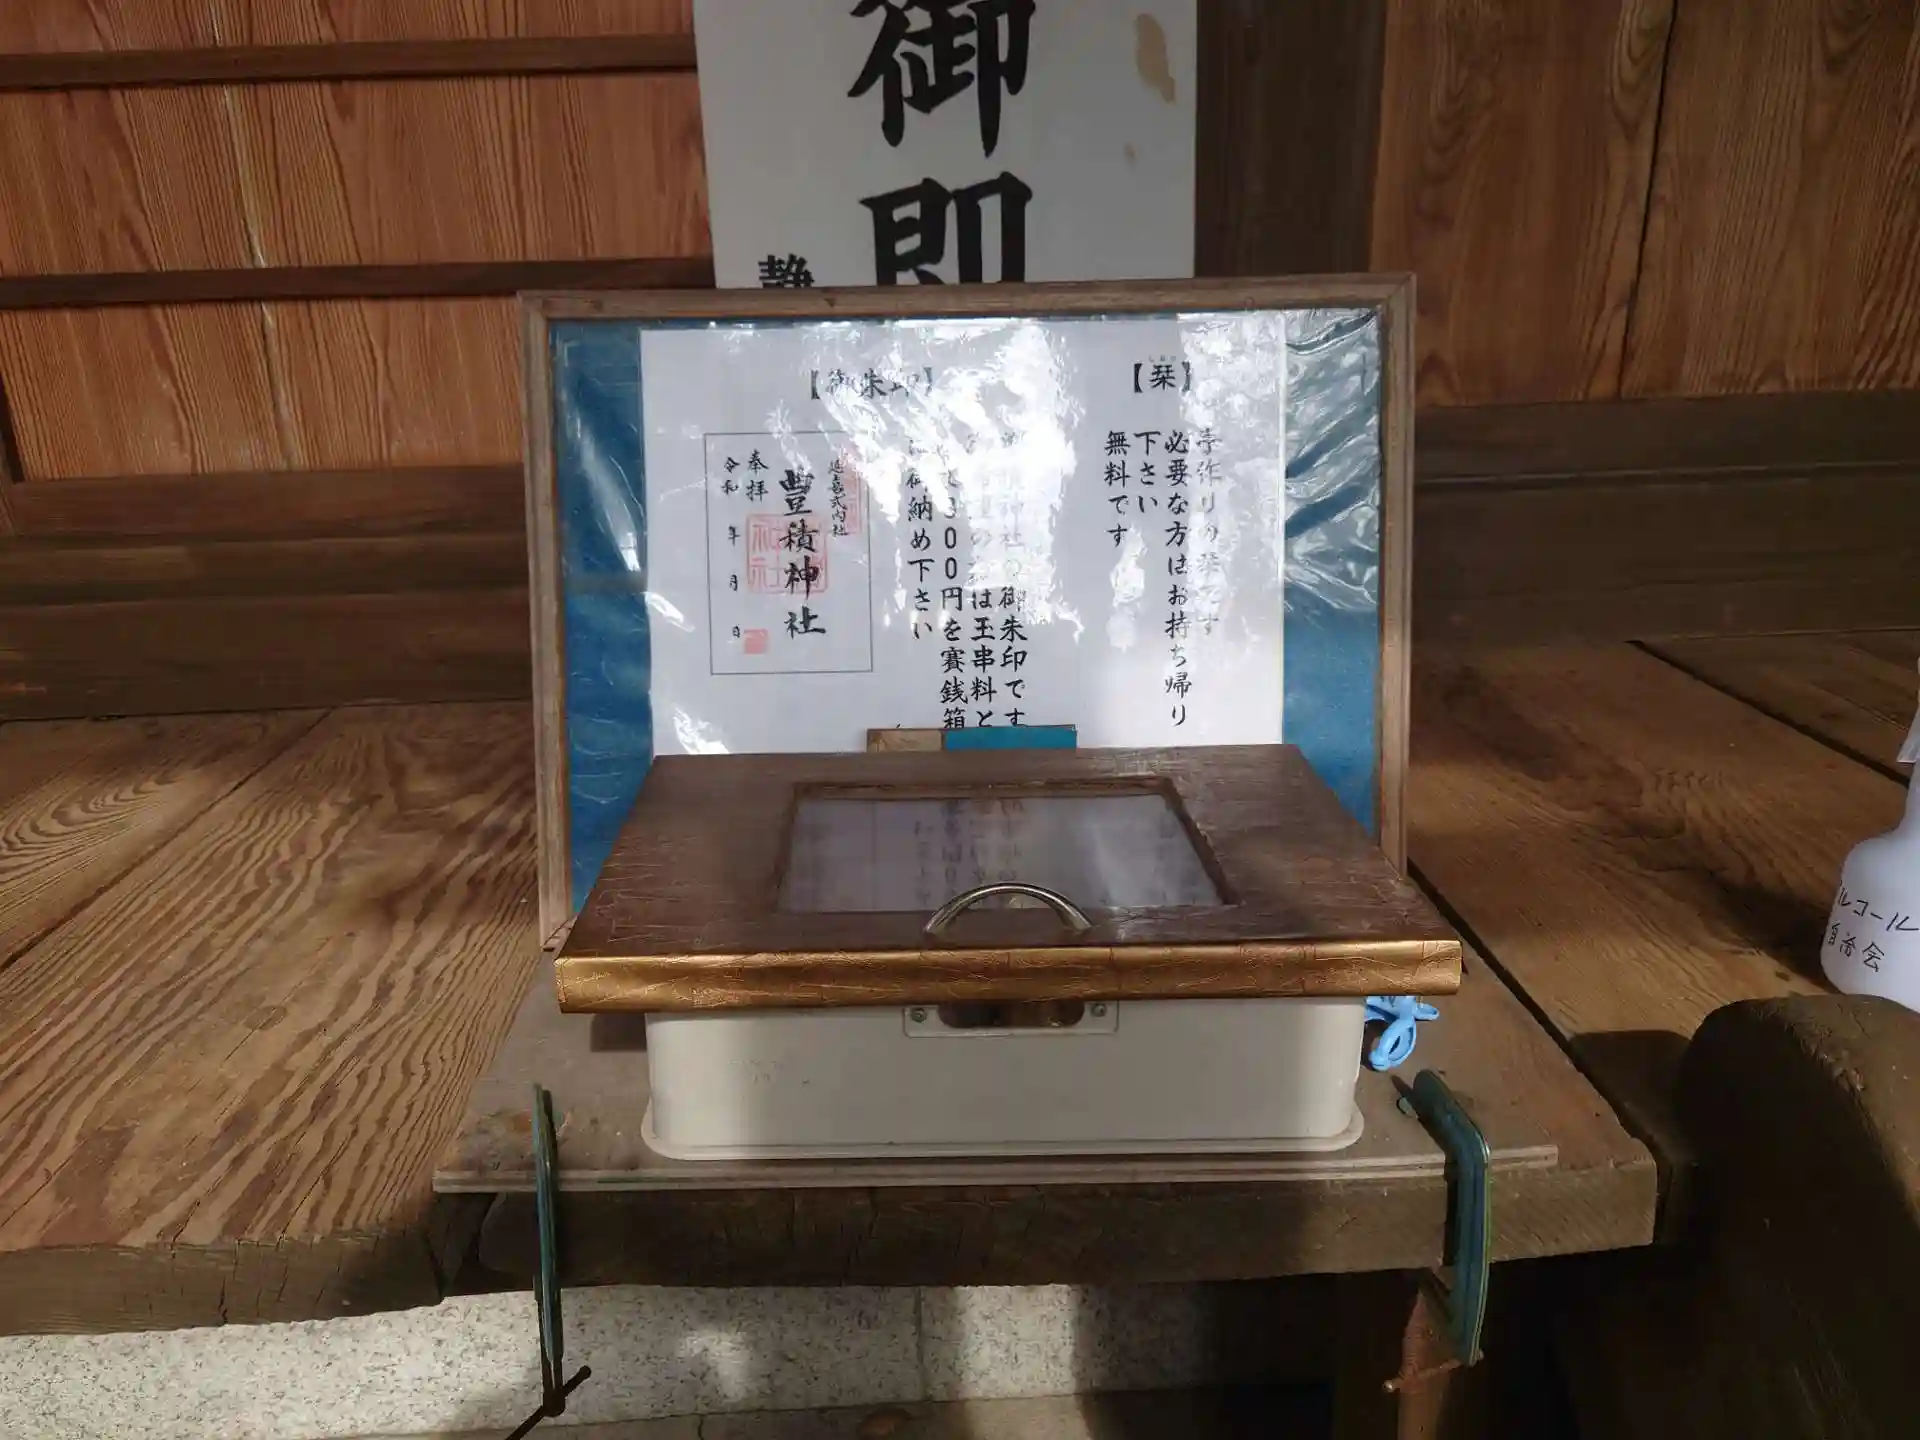 御
即
静
【栞】
しおり
手作りの栞です
必要な方はお持ち帰り
下さい
無料です
【御朱印】
神社の御朱印です
は玉串料と
300円を賽銭箱
御納め下さい
延喜式内社
豊積神社
奉拝
令和 年 月 日
アルコール
自治会